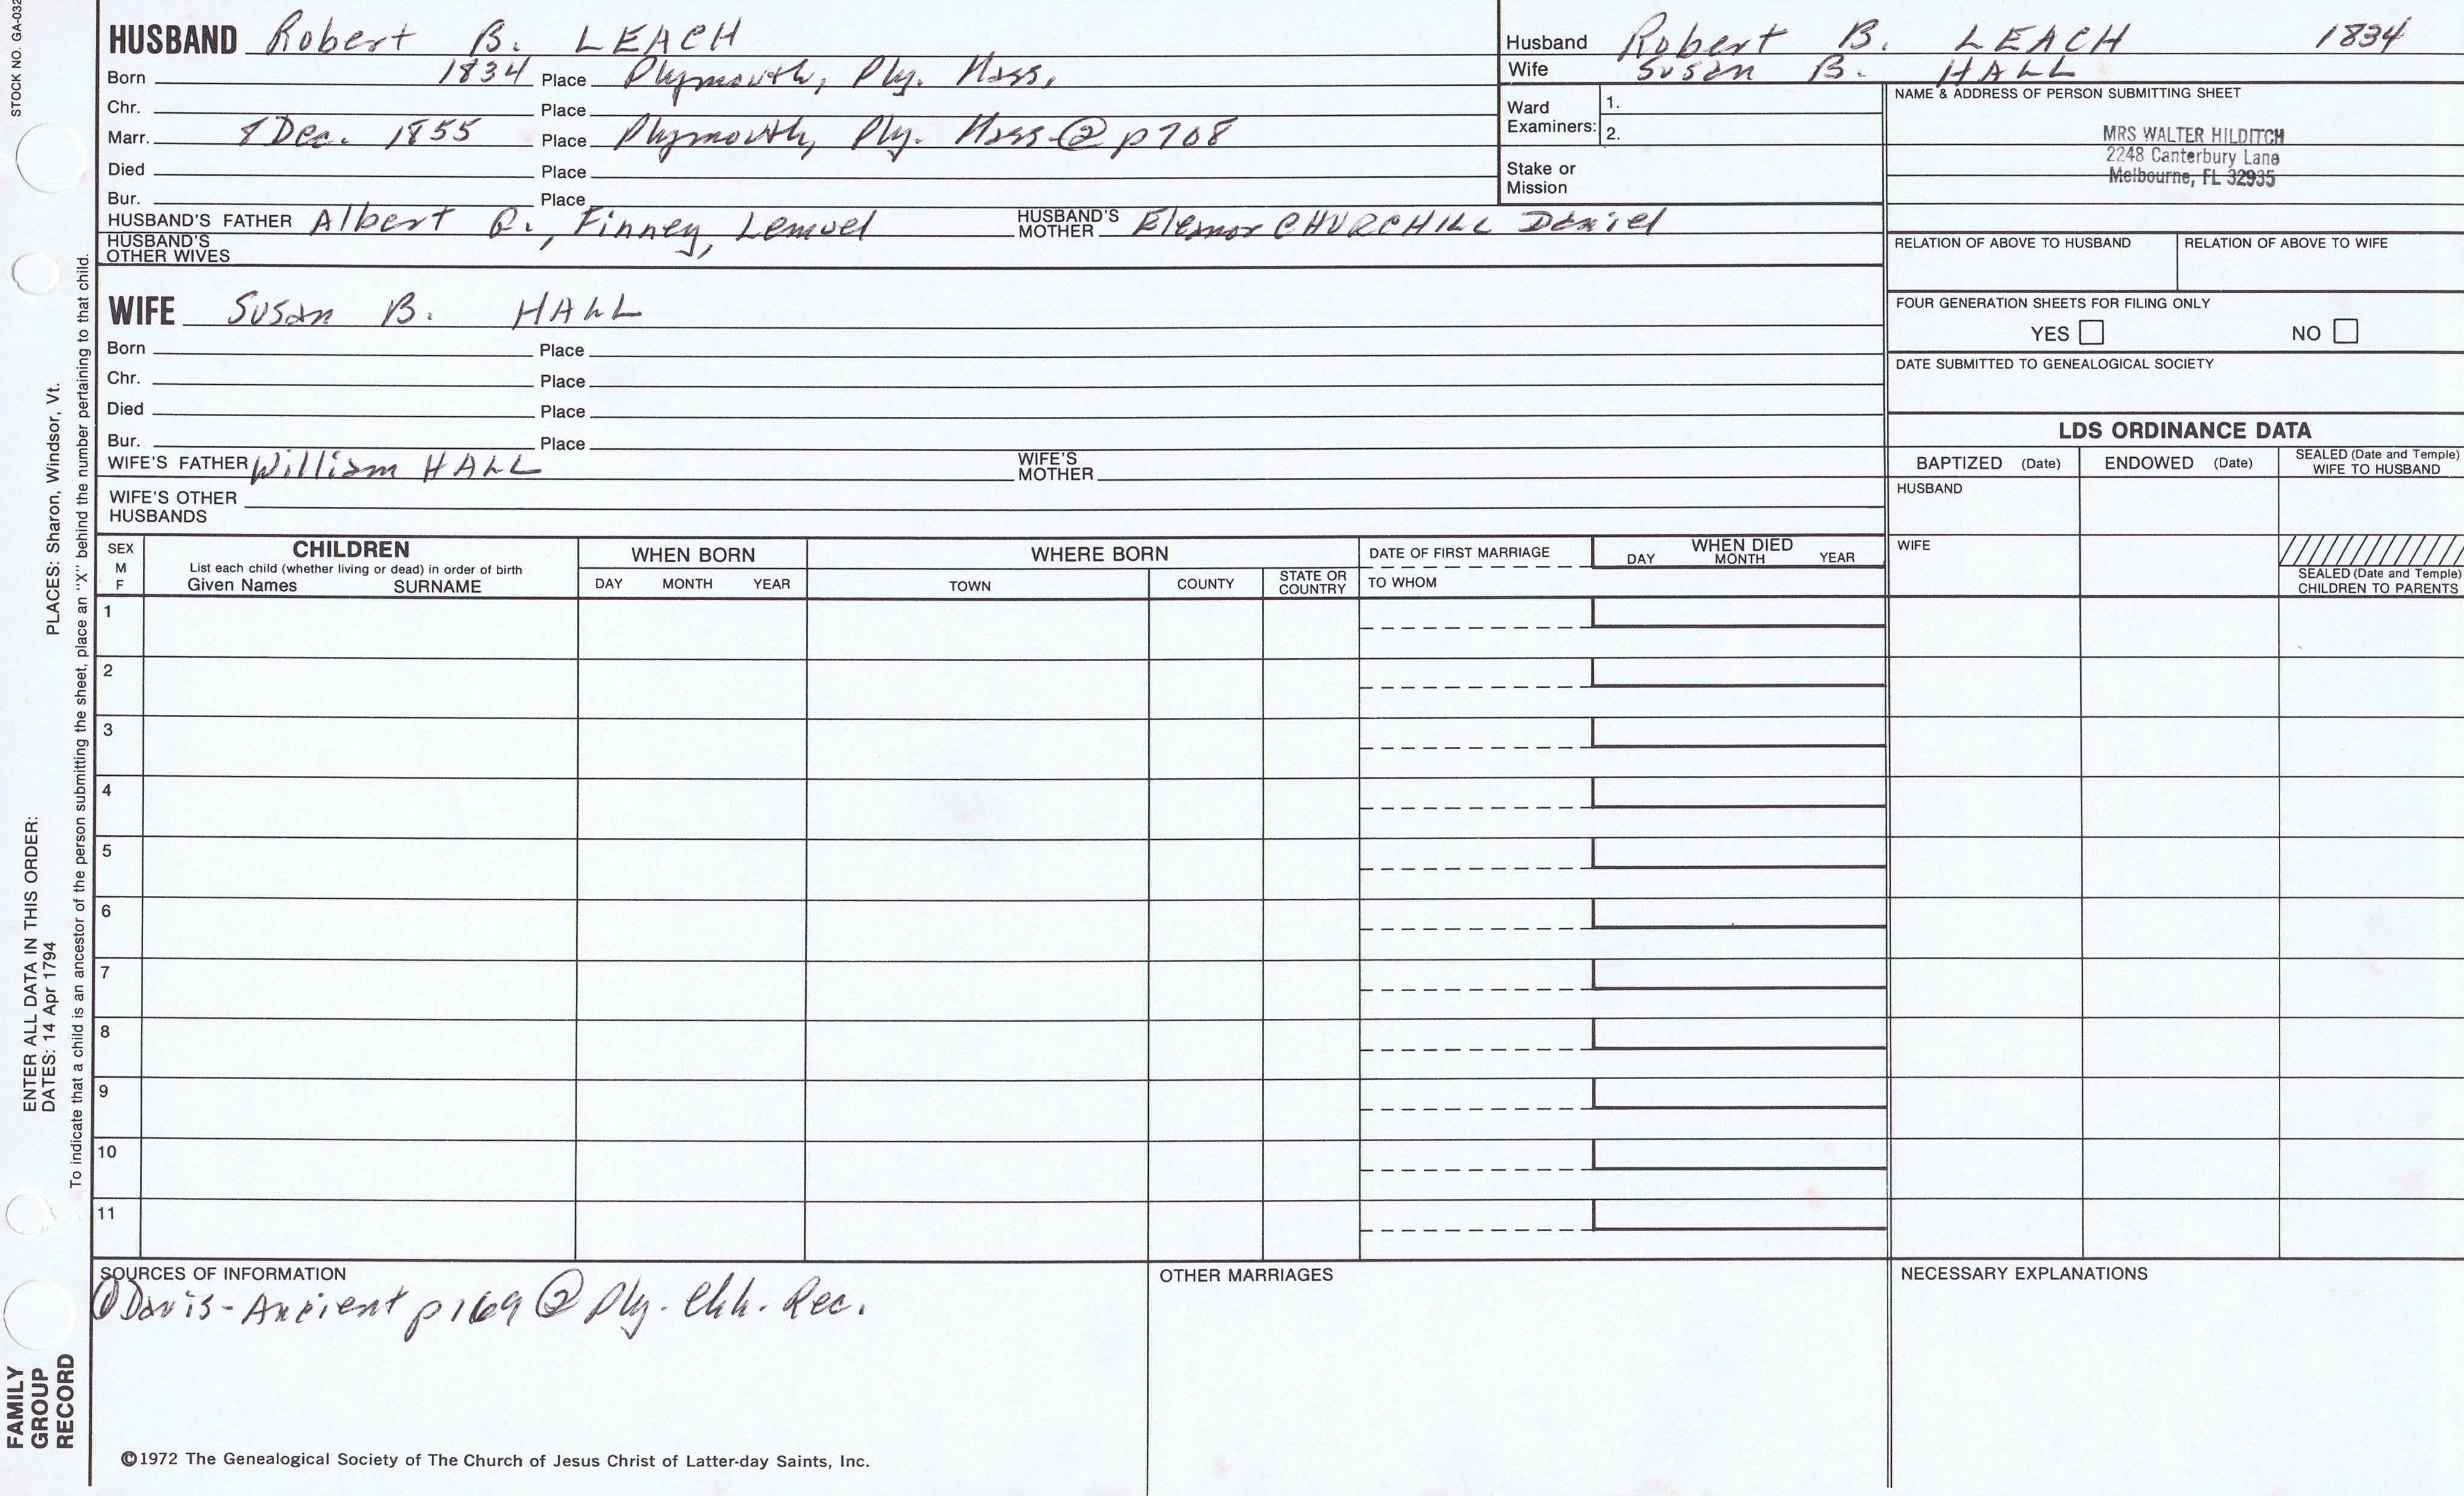 STOCK NO. GA-032
HUSBAND Robert B. LEACH
Born 1834 Place Plymouth, Ply. Mass.
Chr. Place
Marr. 8 Dec. 1855 Place Plymouth, Ply. Mass ② p708
Died Place
Bur. Place
HUSBAND'S FATHER Albert R., Finney, Lemuel HUSBAND'S MOTHER Eleanor CHURCHILL Daniel
HUSBAND'S OTHER WIVES
Husband Robert B. LEACH 1834
Wife Susan B. HALL
Ward Examiners: 1.
2.
Stake or Mission
NAME & ADDRESS OF PERSON SUBMITTING SHEET
MRS WALTER HILDITCH
2248 Canterbury Lane
Melbourne, FL 32935
RELATION OF ABOVE TO HUSBAND RELATION OF ABOVE TO WIFE
FOUR GENERATION SHEETS FOR FILING ONLY
YES NO
DATE SUBMITTED TO GENEALOGICAL SOCIETY
WIFE Susan B. HALL
Born Place
Chr. Place
Died Place
Bur. Place
WIFE'S FATHER William HALL WIFE'S MOTHER
WIFE'S OTHER HUSBANDS
LDS ORDINANCE DATA
BAPTIZED (Date) ENDOWED (Date) SEALED (Date and Temple) WIFE TO HUSBAND
HUSBAND
WIFE
SEALED (Date and Temple) CHILDREN TO PARENTS
SEX M F
CHILDREN
List each child (whether living or dead) in order of birth
Given Names SURNAME
WHEN BORN
DAY MONTH YEAR
WHERE BORN
TOWN COUNTY STATE OR COUNTRY
DATE OF FIRST MARRIAGE
TO WHOM
WHEN DIED
DAY MONTH YEAR
1
2
3
4
5
6
7
8
9
10
11
SOURCES OF INFORMATION
① Davis-Ancient p169 ② Ply. Chh. Rec.
OTHER MARRIAGES
NECESSARY EXPLANATIONS
©1972 The Genealogical Society of The Church of Jesus Christ of Latter-day Saints, Inc.
FAMILY
GROUP
RECORD
ENTER ALL DATA IN THIS ORDER:
DATES: 14 Apr 1794 PLACES: Sharon, Windsor, Vt.
To indicate that a child is an ancestor of the person submitting the sheet, place an "X" behind the number pertaining to that child.